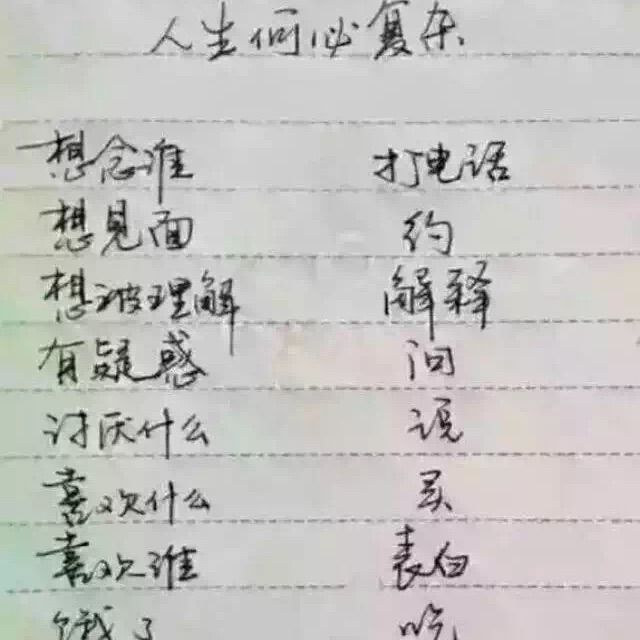 人生何必复杂
想念谁 打电话
想见面 约
想被理解 解释
有疑惑 问
讨厌什么 说
喜欢什么 买
喜欢谁 表白
饿了 吃